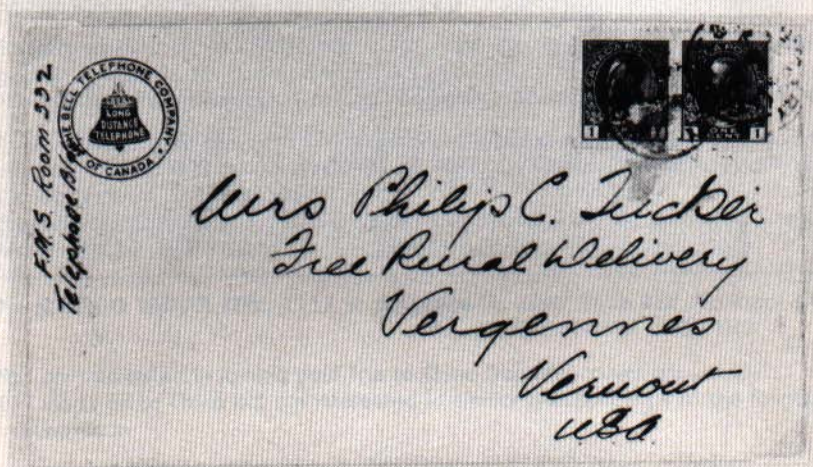 F.M.S. Room 332
Telephone Bldg
THE BELL TELEPHONE COMPANY
OF CANADA
LONG
DISTANCE
TELEPHONE
CANADA POSTAGE
1
ONE
CENT
1
Mrs Philip C. Tucker
Free Rural Delivery
Vergennes
Vermont
USA.